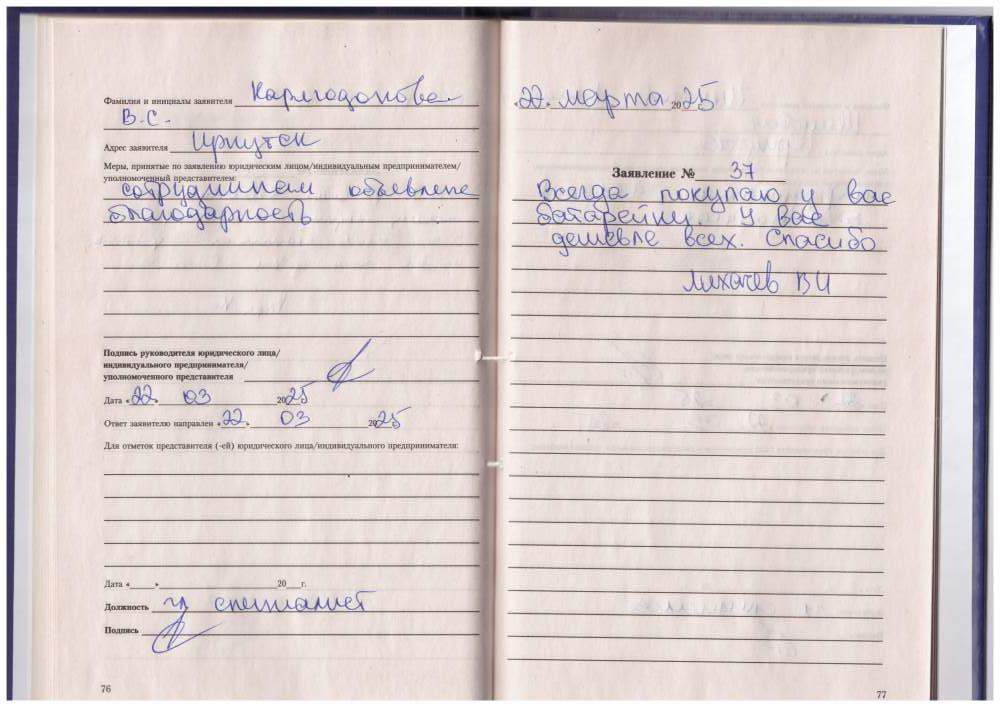 Фамилия и инициалы заявителя
В.С.
Адрес заявителя Иркутск
Меры, принятые по заявлению юридическим лицом/индивидуальным предпринимателем/
уполномоченный представителем:
сотрудникам объевлене
благодарность
Подпись руководителя юридического лица/
индивидуального предпринимателя/
уполномоченного представителя
Дата «22» 03 2025
Ответ заявителю направлен «22» 03 2025
Для отметок представителя (-ей) юридического лица/индивидуального предпринимателя:
Дата « » 20 г.
Должность гл специалист
Подпись
76
«22» марта 2025
Заявление № 37
Всегда покупаю у вас
батарейки. У Вас
дешевле всех. Спасибо
Лихачев ВИ
77